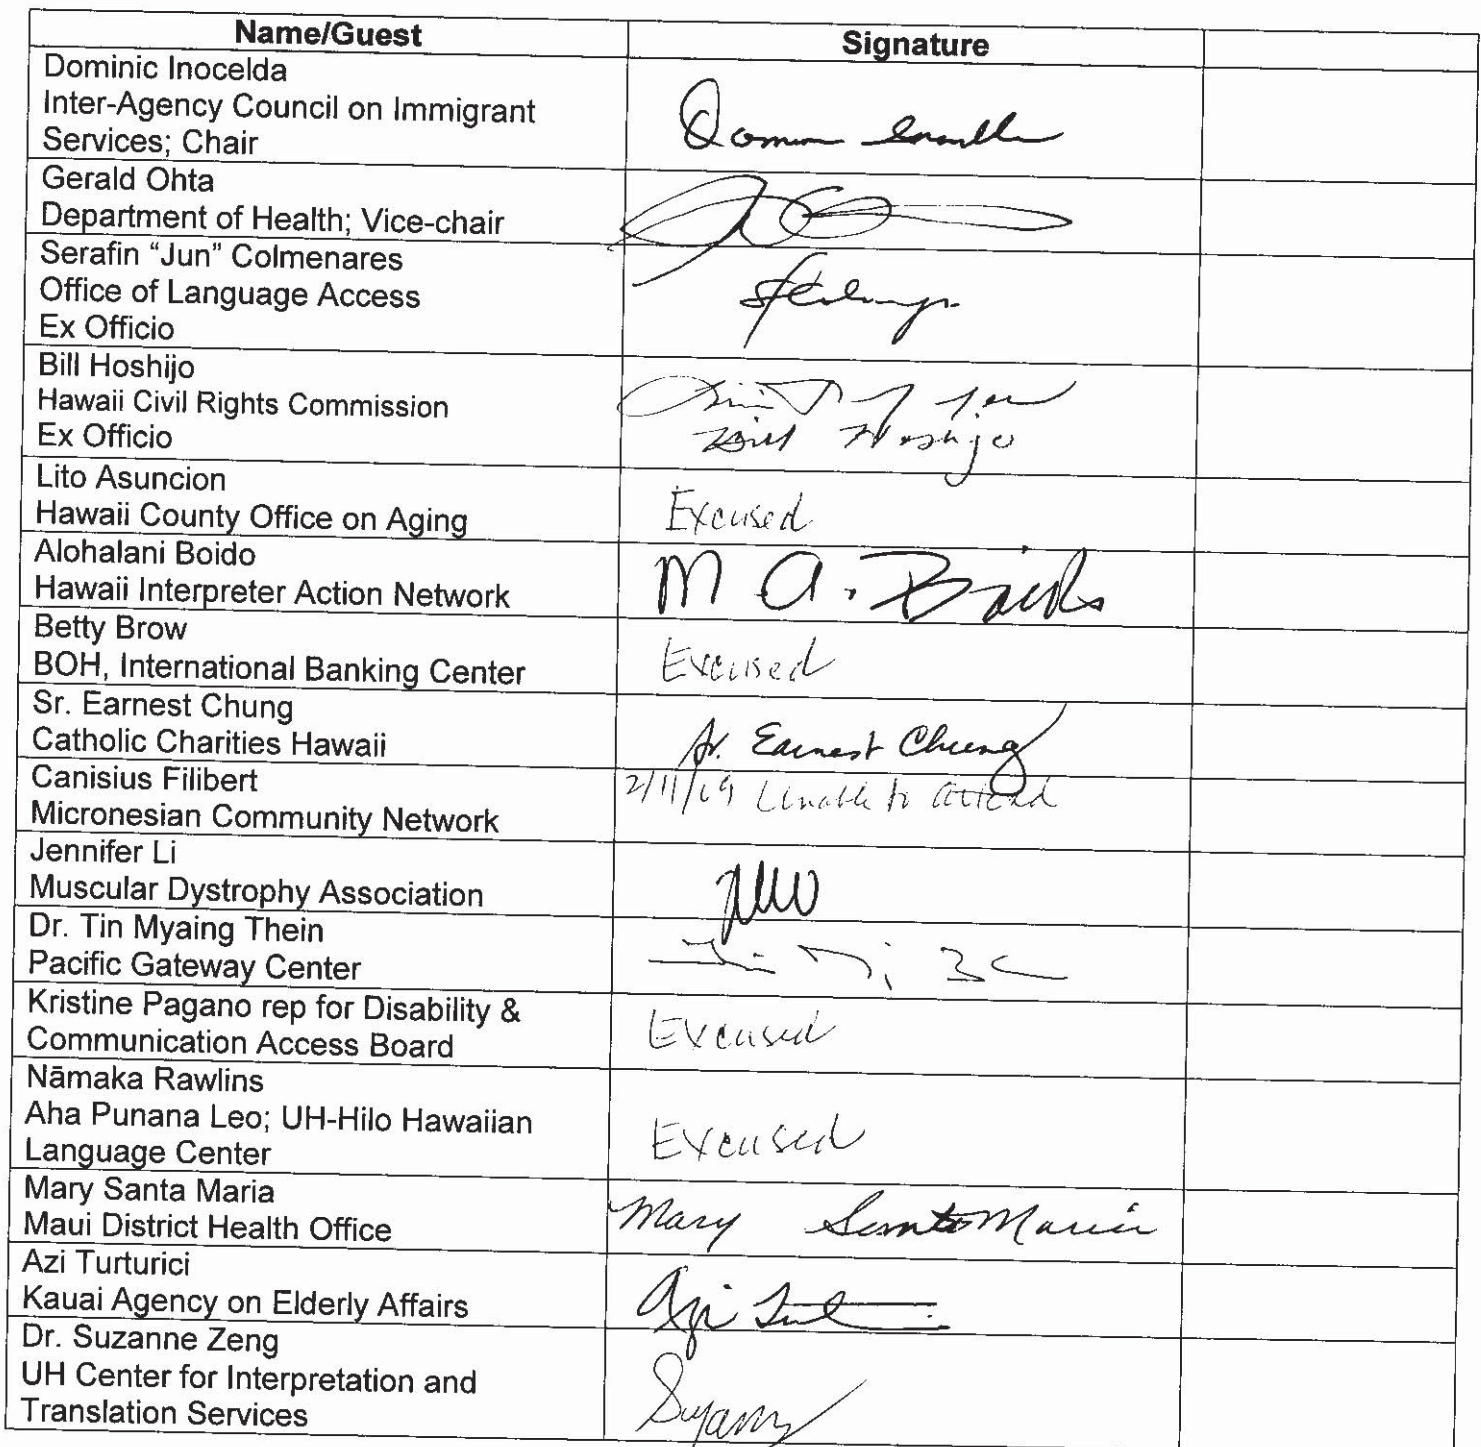 Name/Guest Signature
Dominic Inocelda
Inter-Agency Council on Immigrant
Services; Chair
Gerald Ohta
Department of Health; Vice-chair
Serafin “Jun” Colmenares
Office of Language Access
Ex Officio
Bill Hoshijo
Hawaii Civil Rights Commission
Ex Officio
Bill Hoshijo
Lito Asuncion
Hawaii County Office on Aging
Excused
Alohalani Boido
Hawaii Interpreter Action Network
M A. Boido
Betty Brow
BOH, International Banking Center
Excused
Sr. Earnest Chung
Catholic Charities Hawaii
Sr. Earnest Chung
Canisius Filibert
Micronesian Community Network
2/11/19 Unable to attend
Jennifer Li
Muscular Dystrophy Association
Dr. Tin Myaing Thein
Pacific Gateway Center
Kristine Pagano rep for Disability &
Communication Access Board
Excused
Nāmaka Rawlins
Aha Punana Leo; UH-Hilo Hawaiian
Language Center
Excused
Mary Santa Maria
Maui District Health Office
Mary Santa Maria
Azi Turturici
Kauai Agency on Elderly Affairs
Azi
Dr. Suzanne Zeng
UH Center for Interpretation and
Translation Services